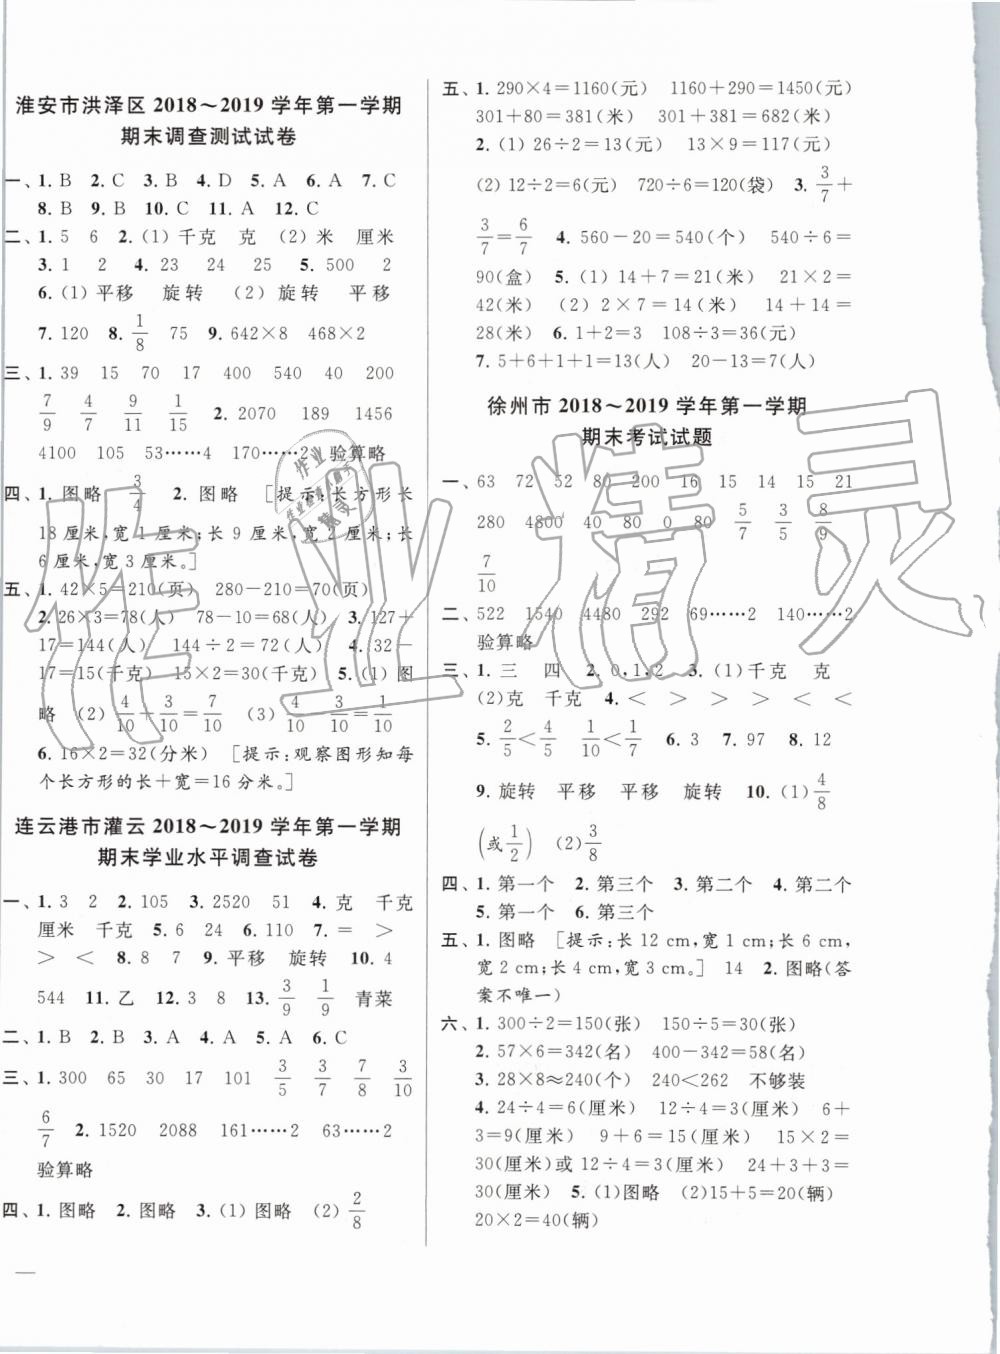 淮安市洪泽区 2018～2019 学年第一学期
期末调查测试试卷
一、1. B 2. C 3. B 4. D 5. A 6. A 7. C
8. B 9. B 10. C 11. A 12. C
二、1. 5 6 2. (1) 千克 克 (2) 米 厘米
3. 1 2 4. 23 24 25 5. 500 2
6. (1) 平移 旋转 (2) 旋转 平移
7. 120 8. 1/8 75 9. 642×8 468×2
三、1. 39 15 70 17 400 540 40 200
7/9 4/7 9/11 1/15 2. 2070 189 1456
4100 105 53……4 170……2 验算略
四、1. 图略 3/4 2. 图略 [提示:长方形长
18 厘米,宽 1 厘米;长 9 厘米,宽 2 厘米;长
6 厘米,宽 3 厘米。]
五、1. 42×5=210(页) 280-210=70(页)
2. 26×3=78(人) 78-10=68(人) 3. 127+
17=144(人) 144÷2=72(人) 4. 32-
17=15(千克) 15×2=30(千克) 5. (1) 图
略 (2) 4/10+3/10=7/10 (3) 4/10-3/10=1/10
6. 16×2=32(分米) [提示:观察图形知每
个长方形的长+宽=16 分米。]
连云港市灌云 2018～2019 学年第一学期
期末学业水平调查试卷
一、1. 3 2 2. 105 3. 2520 51 4. 克 千克
厘米 千克 5. 6 24 6. 110 7. = >
> < 8. 8 7 9. 平移 旋转 10. 4
544 11. 乙 12. 3 8 13. 3/9 1/9 青菜
二、1. B 2. B 3. A 4. A 5. A 6. C
三、1. 300 65 30 17 101 3/5 3/7 7/8 3/10
6/7 2. 1520 2088 161……2 63……2
验算略
四、1. 图略 2. 图略 3. (1) 图略 (2) 2/8
五、1. 290×4=1160(元) 1160>1100(元)
301+80=381(米) 301+381=682(米)
2. (1) 26÷2=13(元) 13×9=117(元)
(2) 12÷2=6(元) 720÷6=120(袋) 3. 3/7+
3/7=6/7 4. 560-20=540(个) 540÷6=
90(盒) 5. (1) 14+7=21(米) 21×2=
42(米) (2) 2×7=14(米) 14+14=
28(米) 6. 1+2=3 108÷3=36(元)
7. 5+6+1+1=13(人) 20-13=7(人)
徐州市 2018～2019 学年第一学期
期末考试试题
一、63 72 52 80 200 16 15 14 15 21
280 4800 40 80 0 80 5/7 3/5 8/9
7/10
二、522 1540 4480 292 69……2 140……2
验算略
三、1. 三 四 2. 0,1,2 3. (1)千克 克
(2)克 千克 4. < > > > < <
5. 2/5<4/5 1/10<1/7 6. 3 7. 97 8. 12
9. 旋转 平移 平移 旋转 10. (1) 4/8
(或1/2) (2)3/8
四、1. 第一个 2. 第三个 3. 第二个 4. 第二个
5. 第一个 6. 第三个
五、1. 图略 [提示:长 12 cm,宽 1 cm;长 6 cm,
宽 2 cm;长 4 cm,宽 3 cm。] 14 2. 图略(答
案不唯一)
六、1. 300÷2=150(张) 150÷5=30(张)
2. 57×6=342(名) 400-342=58(名)
3. 28×8≈240(个) 240<262 不够装
4. 24÷4=6(厘米) 12÷4=3(厘米) 6+
3=9(厘米) 9+6=15(厘米) 15×2=
30(厘米)或 12÷4=3(厘米) 24+3+3=
30(厘米) 5. (1)图略 (2)15+5=20(辆)
20×2=40(辆)
作业精灵